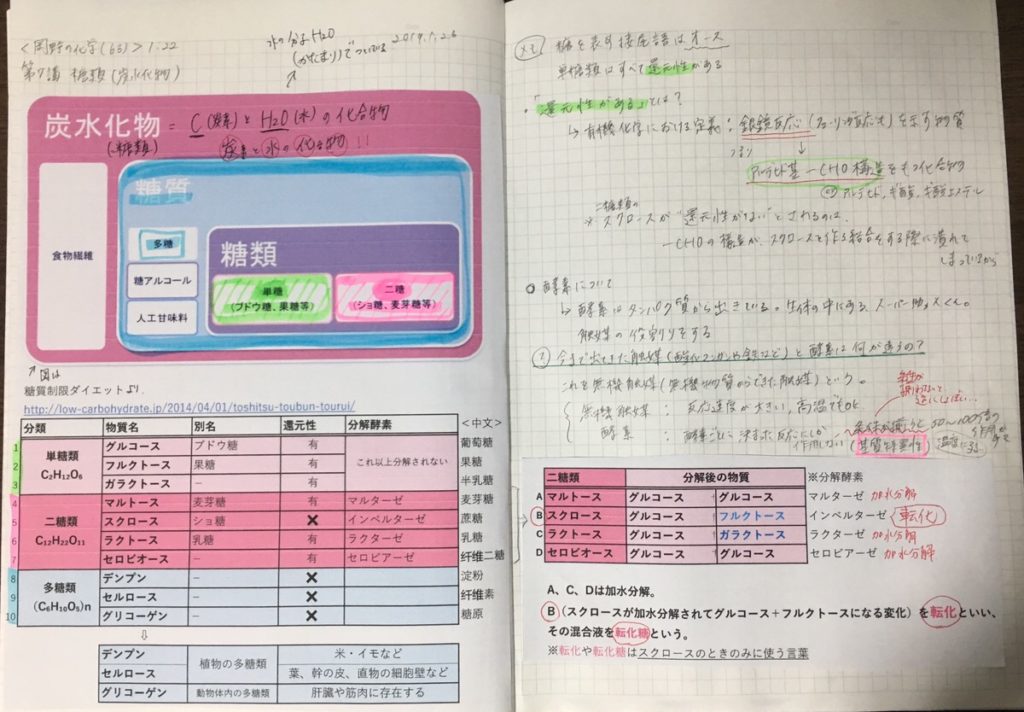 <岡野の化学(63)> 1.22
第7講 糖類(炭水化物)
水の分子H2O
(かたまり)で
2019.1.26
炭水化物 = C(炭素)とH2O(水)の化合物
(糖類)
炭素と水の化合物!!
糖質
食物繊維
多糖
糖アルコール
人工甘味料
糖類
単糖
(ブドウ糖、果糖等)
二糖
(ショ糖、麦芽糖等)
↗図は
糖質制限ダイエットより
http://low-carbohydrate.jp/2014/04/01/toshitsu-toubun-tourui/
分類 物質名 別名 還元性 分解酵素 <中文>
単糖類 C₂H₁₂O₆
1 グルコース ブドウ糖 有 これ以上分解されない 葡萄糖
2 フルクトース 果糖 有 果糖
3 ガラクトース − 有 半乳糖
二糖類 C₁₂H₂₂O₁₁
4 マルトース 麦芽糖 有 マルターゼ 麦芽糖
5 スクロース ショ糖 ✕ インベルターゼ 蔗糖
6 ラクトース 乳糖 有 ラクターゼ 乳糖
7 セロビオース − 有 セロビアーゼ 纤维二糖
多糖類 (C₆H₁₀O₅)n
8 デンプン − ✕ 淀粉
9 セルロース − ✕ 纤维素
10 グリコーゲン − ✕ 糖原
⇩
デンプン 植物の多糖類 米・イモなど
セルロース 葉、幹の皮、直物の細胞壁など
グリコーゲン 動物体内の多糖類 肝臓や筋肉に存在する
糖を表す接尾語はオース
単糖類はすべて還元性がある
・「還元性がある」とは?
↳有機化学における定義:銀鏡反応(フェーリング反応も)を示す物質
↓
つまり
アルデヒド基 −CHO構造をもつ化合物
アルデヒド、ギ酸、ギ酸エステル
二糖類の
※スクロースが"還元性がない"とされるのは、
−CHOの構造が、スクロースを作る結合をする際に潰れて
しまっているから
○ 酵素について
↳酵素はタンパク質から出きている。生体の中にあるスーパー助っ人くん。
触媒の役割りをする
今まで出てきた触媒(酸化マンガンや鉄など)と酵素は何が違うの?
これを無機触媒(無機物質からできた触媒)という。
無機触媒:反応速度が大きい,高温でもOK
酵素:酵素ごとに決まった反応にしか作用しない
(基質特異性)
二糖類 分解後の物質 ※分解酵素
A マルトース グルコース グルコース マルターゼ 加水分解
B スクロース グルコース フルクトース インベルターゼ (転化)
C ラクトース グルコース ガラクトース ラクターゼ 加水分解
D セロビオース グルコース グルコース セロビアーゼ 加水分解
A、C、Dは加水分解。
B(スクロースが加水分解されてグルコース+フルクトースになる変化)を転化といい、
その混合液を転化糖という。
※転化や転化糖はスクロースのときのみに使う言葉